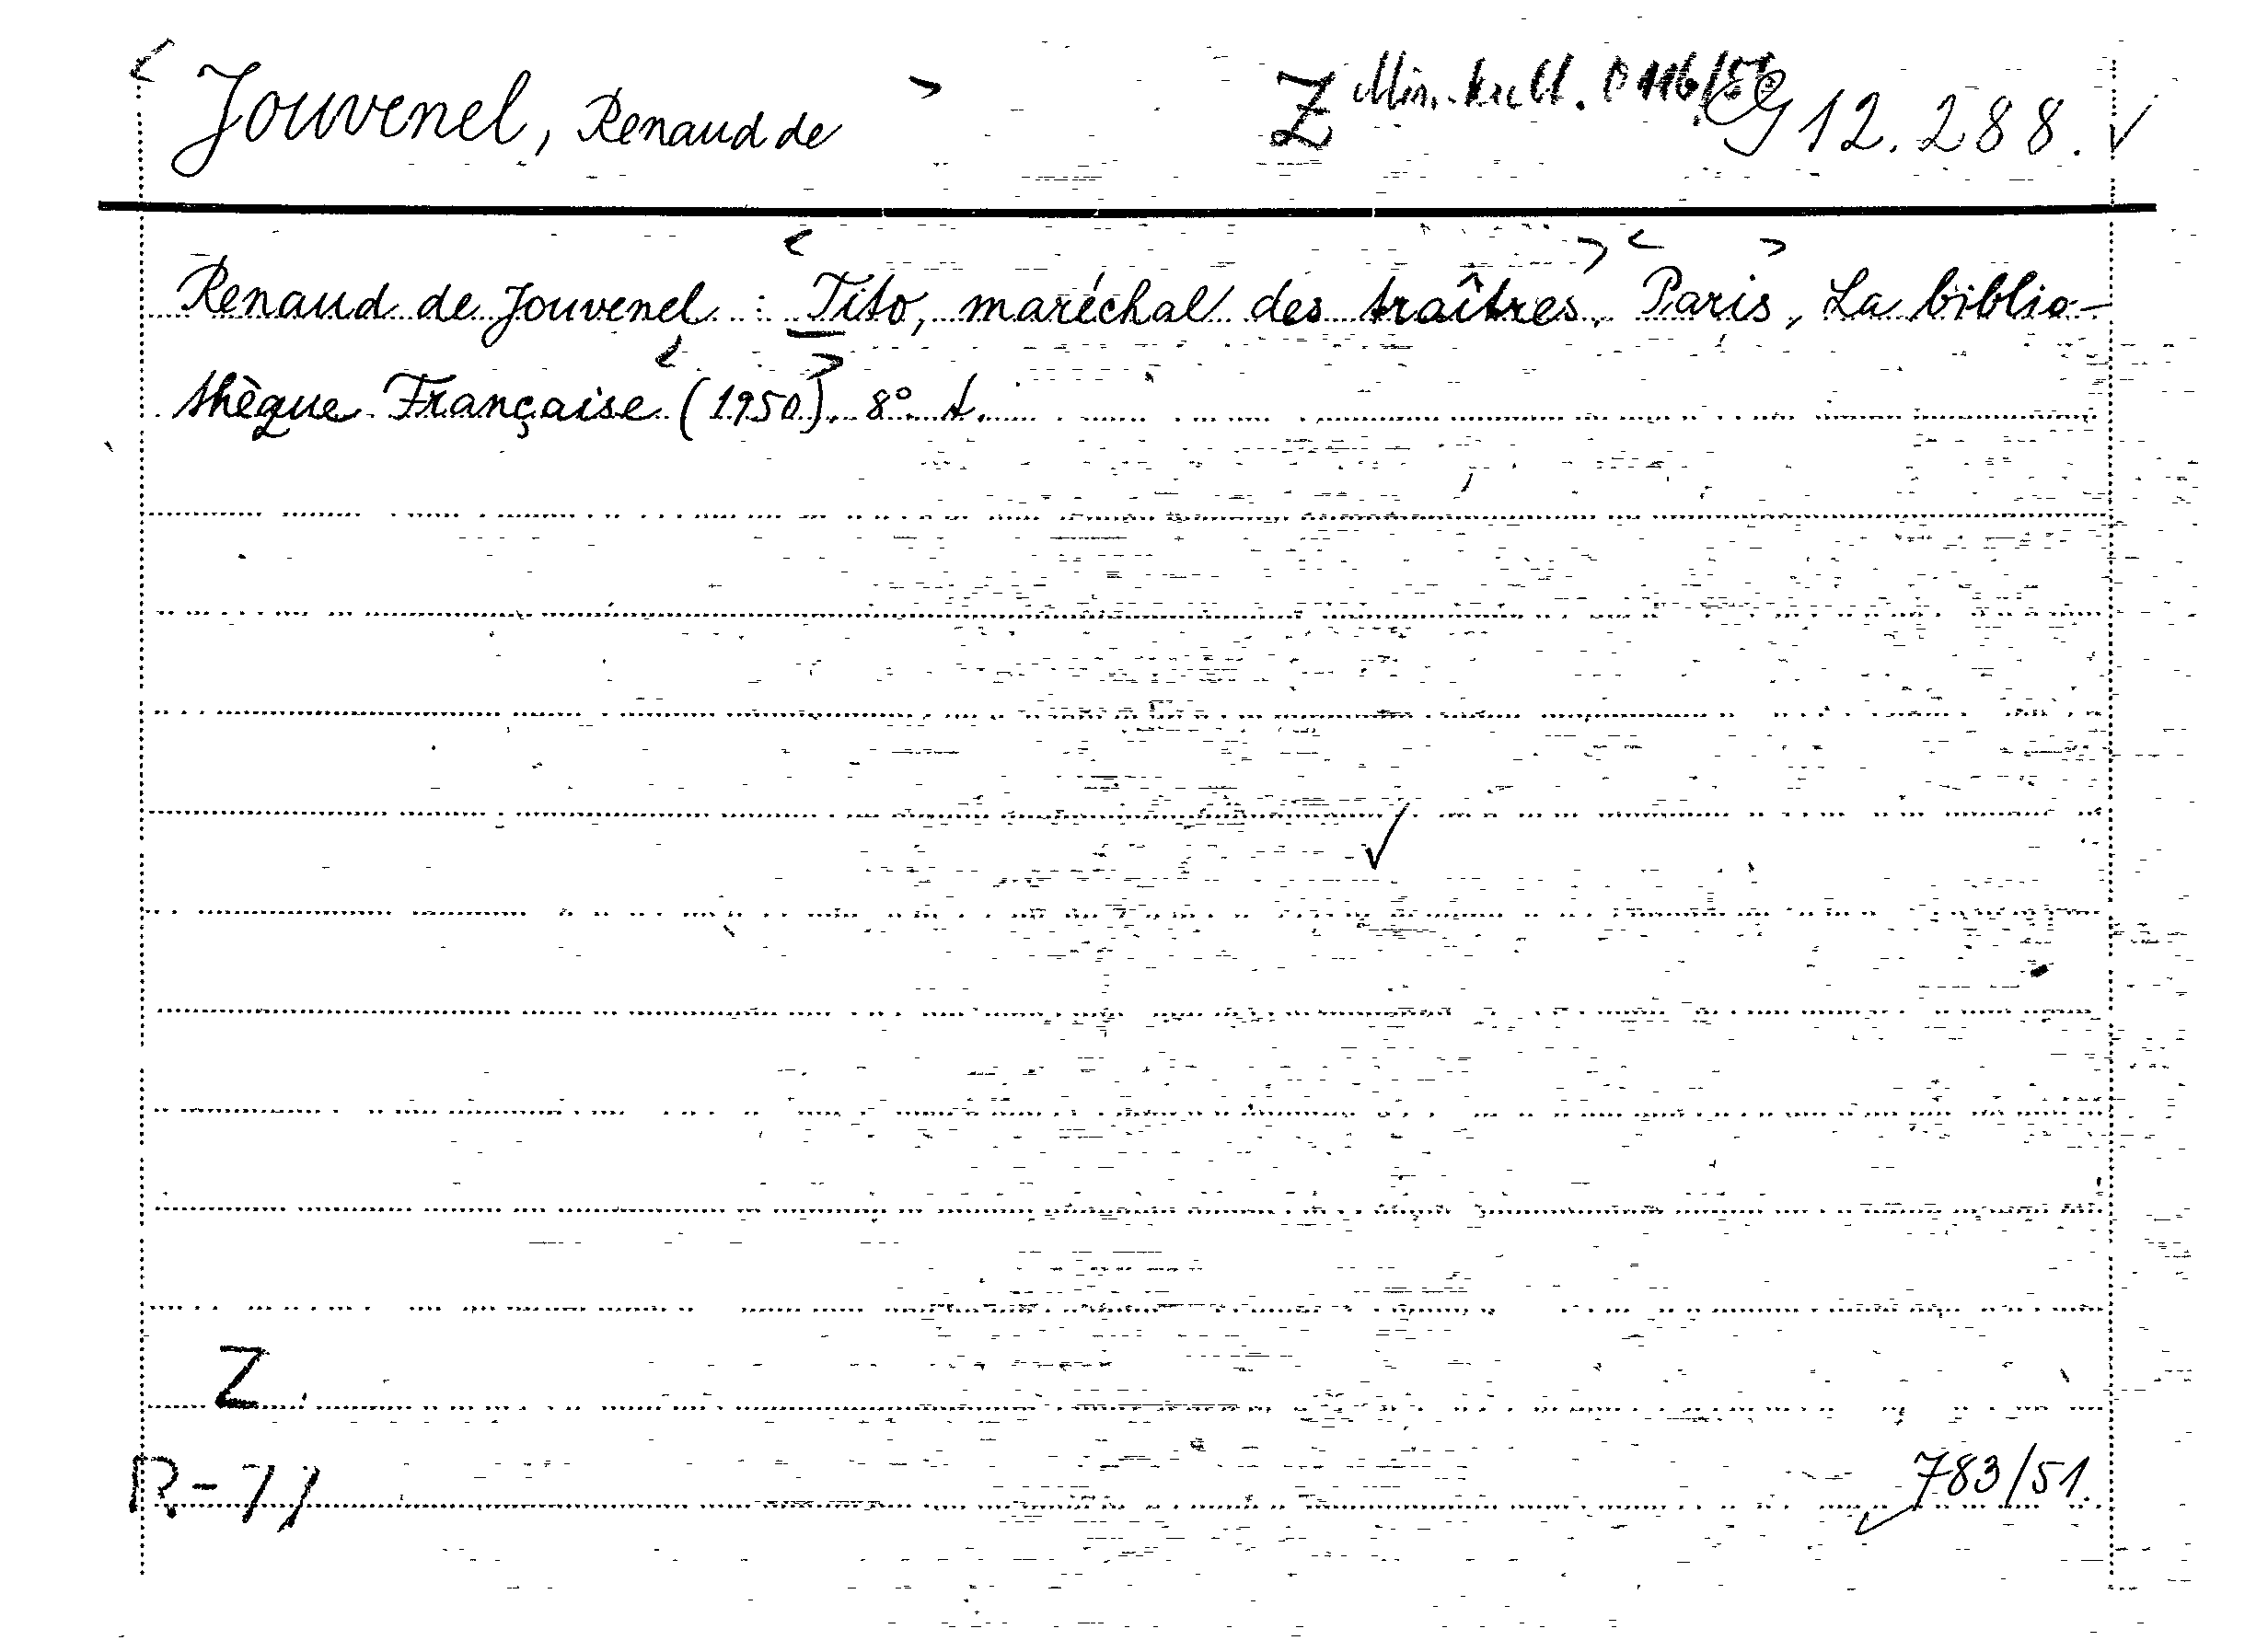 < Jouvenel, Renaud de > Z Min. kult. 0116/56 G 12.288. √
Renaud de Jouvenel : <Tito, maréchal des traîtres>, <Paris>, La biblio-
thèque Française <(1950)>. 8°.
√
Z
R-77
783/51.